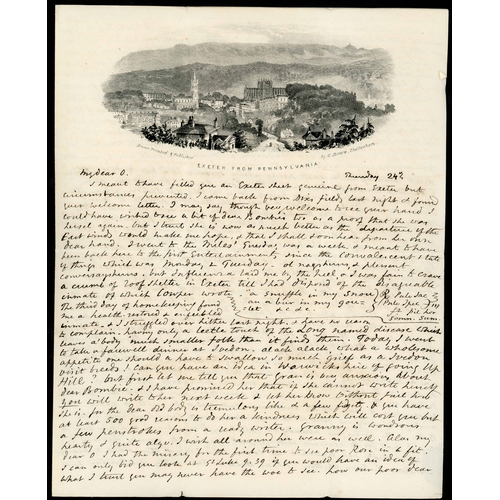 Drawn Printed & Published
by G. Rowe, Cheltenham
EXETER FROM PENNSYLVANIA
My dear O. Thursday 24th.
I meant to have filled you an Exeter sheet genuine from Exeter but
circumstances prevented. I came back from Exe's field last night & found
your welcome letter. I may say, though very welcome to see your hand I
could have wished to see a bit of dear Bombie's too as a proof that she was
herself again. but I trust she is now as much better as the departure of the
East winds would make me hope, & that I shall soon hear from her own
dear hand. I went to the Miles' Tuesday was a week & meant to have
been back here to the first Entertainments since the Convalescent state
of things which was Monday & Tuesday. at neighbours & pleasant
conversaziones. but Influenza laid me by the heel, & I was fain to crave
a crumb of roof shelter in Exeter till I had disposed of the disagreeable
inmate of which Cowper wrote "a snuffle in my
The third day of homekeeping found an a buz in my
me in health restored & enfeebled &c &c &c.
inmate, & I straggled over hither last night. & have reason
to complain. having only a little touch of the Long named disease which
leaves a body much smaller folk than it finds them. Today I went
to take a farewell dinner at Ivedon. alack alack what a wholesome
appetite one should have to swallow so much grief as a Ivedon
visit breeds! Can you have an idea in Warwickshire of going Up
Hill? but first let me tell you that Grain is very anxious about
dear Bombie. & I have promised her that if she cannot write herself
you will write to her next week & let her know without fail how
she is. for the dear old body is tremulous like in a few, & you have
at least 500 good reasons to do her a kindness, which will cost you but
a few penstrokes from a ready writer. Granny is wondrous
hearty & quite alye. I wish all around her were as well. Alas my
dear O I had the misery for the first time to see poor Ron in a fit.
I can only bid you look at St Luke 9.39 if you would have an idea of
what I trust you may never have the woe to see. how our poor dear